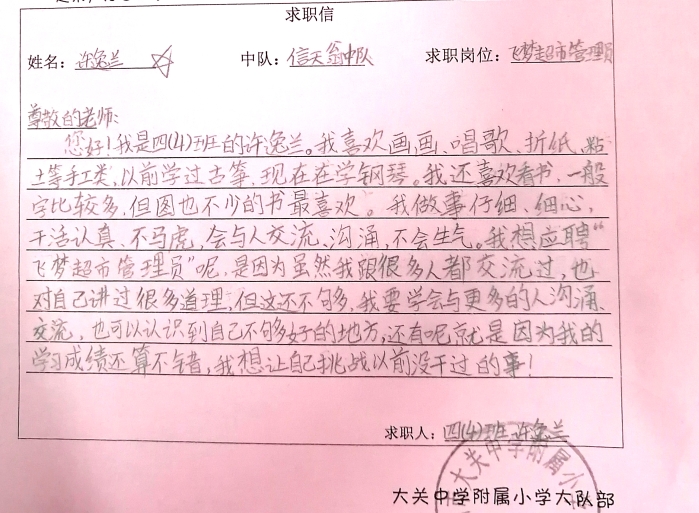 求职信
姓名：许逸兰 中队：信天翁中队 求职岗位：飞梦超市管理员
尊敬的老师：
您好！我是四(4)班的许逸兰。我喜欢画画、唱歌、折纸、黏
土等手工类，以前学过古筝，现在在学钢琴。我还喜欢看书，一般
字比较多，但图也不少的书最喜欢。我做事仔细、细心，
干活认真、不马虎，会与人交流、沟通，不会生气。我想应聘“
飞梦超市管理员”呢，是因为虽然我跟很多人都交流过，也
对自己讲过很多道理，但这还不够多，我要学会与更多的人沟通、
交流，也可以认识到自己不够好的地方，还有呢就是因为我的
学习成绩还算不错，我想让自己挑战以前没干过的事！
求职人：四(4)班 许逸兰
大关中学附属小
大关中学附属小学大队部